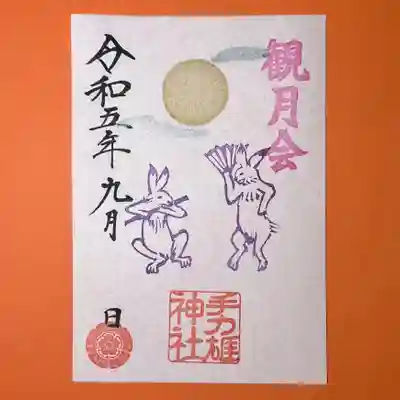 観月会
令和五年九月
日
手力雄
神社